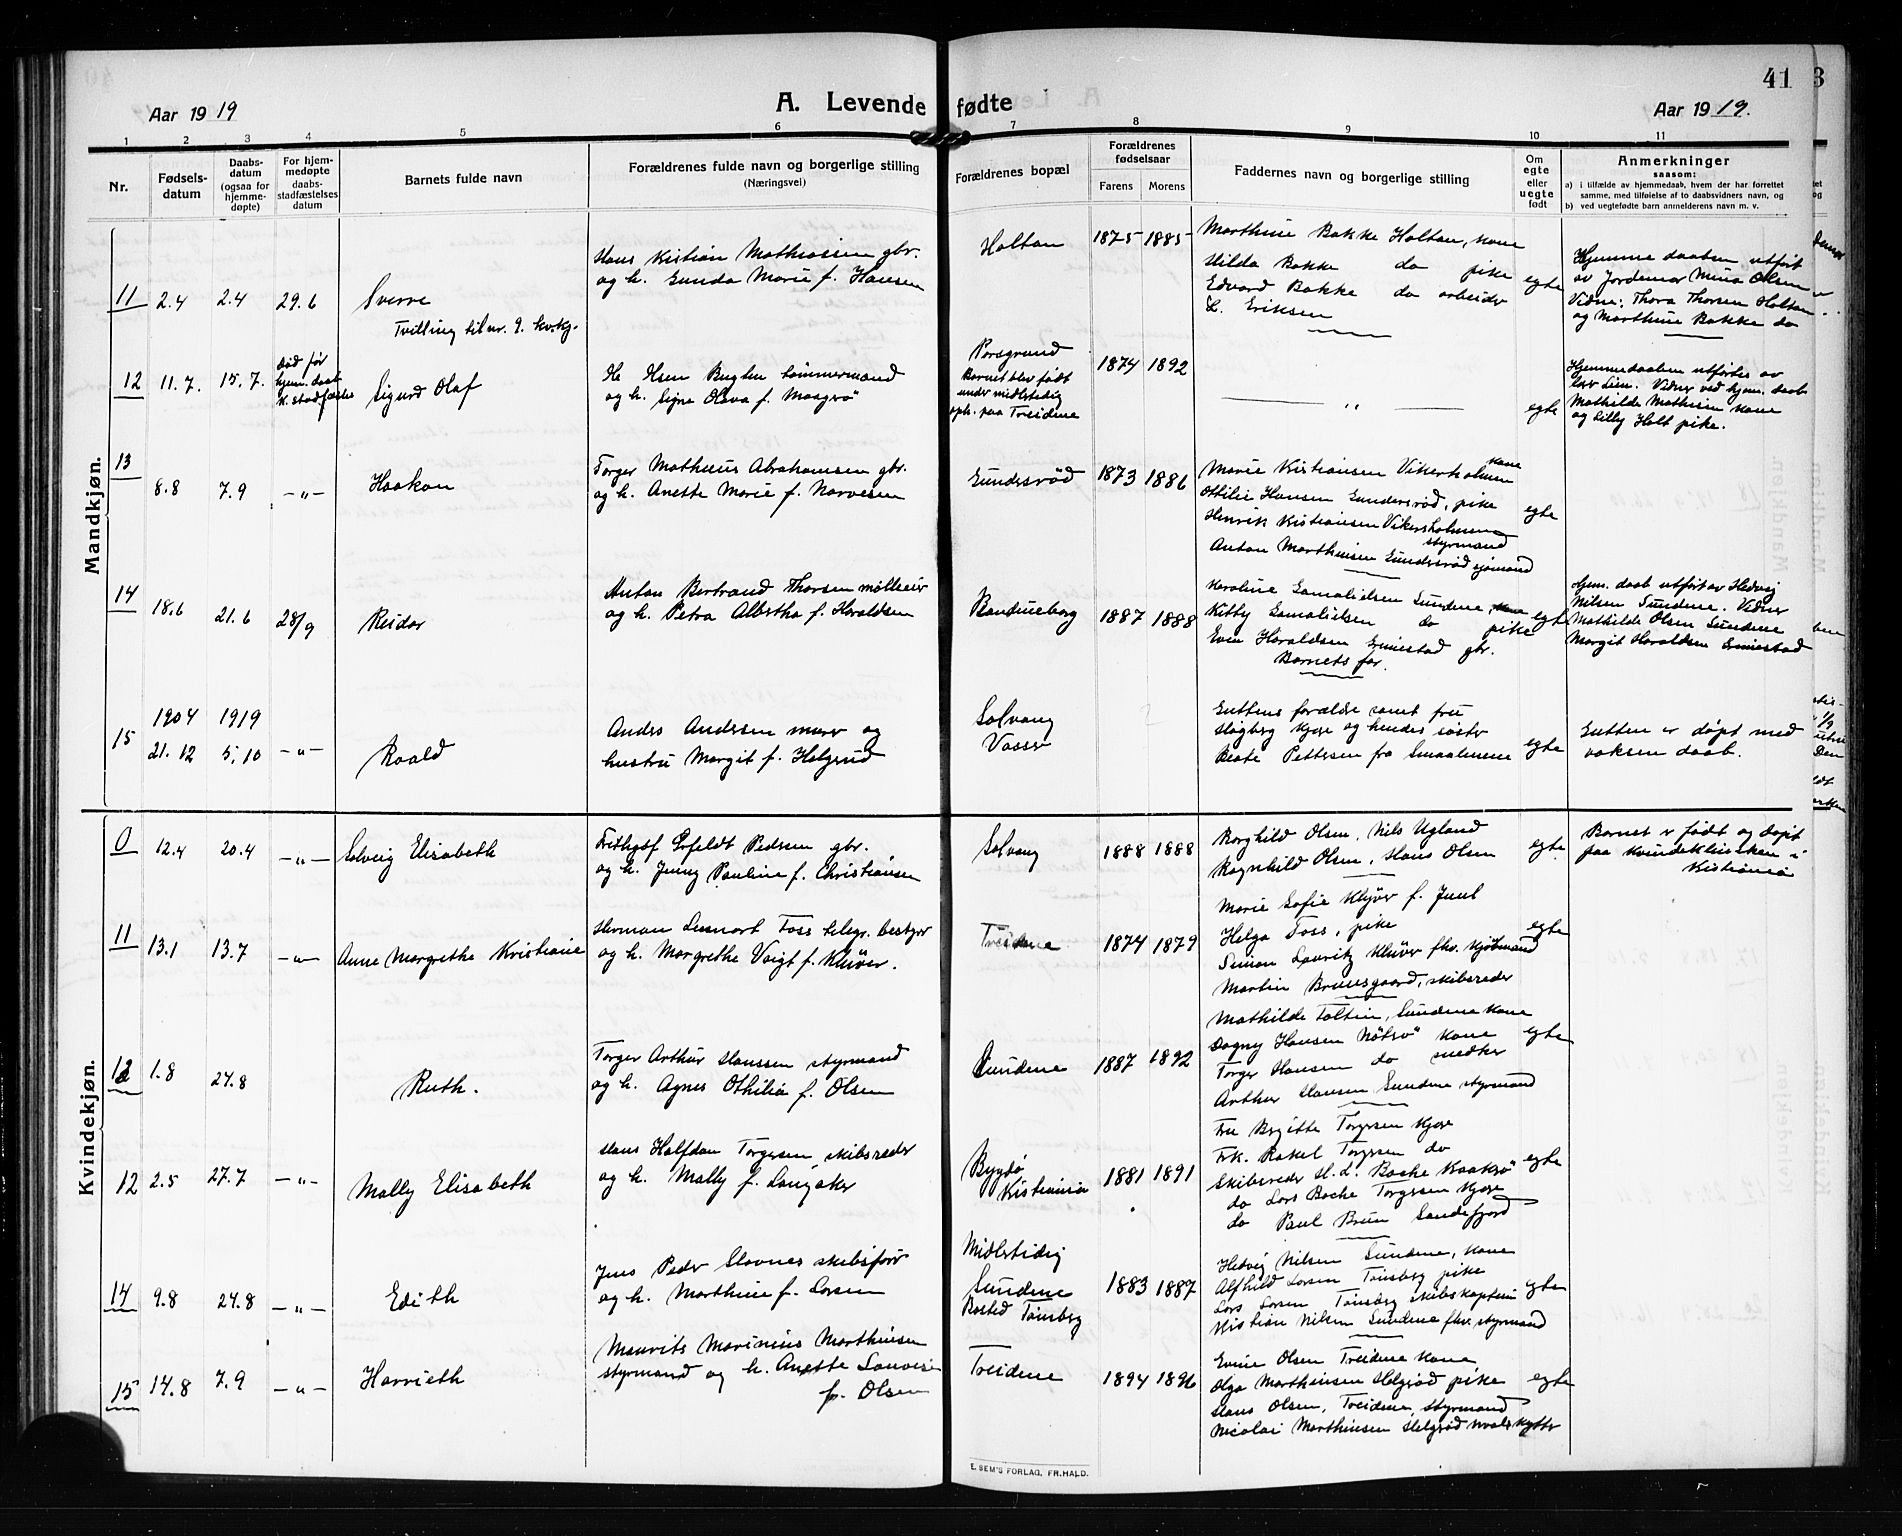 41
Aar 1919
A. Levende fødte
Aar 1919.
1 2 3 4 5 6 7 8 9 10 11
Nr.
Fødsels-
datum
Daabs-
datum
(ogsaa for
hjemme-
døpte)
For hjem-
medøpte
daabs-
stadfæstelses
datum
Barnets fulde navn
Forældrenes fulde navn og borgerlige stilling
(Næringsvei)
Forældrenes bopæl
Forældrenes
fødselsaar
Farens Morens
Faddernes navn og borgerlige stilling
Om
egte
eller
uegte
født
Anmerkninger
saasom:
a) i tilfælde av hjemmedaab, hvem der har forrettet
samme, med tilføielse af to daabsvidners navn, og
b) ved uegtefødte barn anmelderens navn m. v.
Mandkjøn.
11 2.4 2.4 29.6
Sverre
Tvilling til nr. 9. kv.kj.
Hans Kristian Mathiassen gbr.
og h. Gunda Marie f. Hansen
Holtan
1875 1885
Marthine Bakke Holtan, kone
Hilda Bakke do pike
Edvard Bakke do arbeider
L. Eriksen
egte
Hjemme daaben utført
av Jordmor Mina Olsen
Vidne: Thora Thorsen Holtan
og Marthine Bakke do
12 11.7. 15.7.
død før
hjem. daab
k. stadfæstes
Sigurd Olaf
og h. Signe Olava f. Maagerø
Porsgrund
Barnet blev født
under midlertidig
oph. paa Treidene
1874 1892
— " —
egte
Hjemmedaaben utførtes av
Vidner ved hjem. daab
Mathilde Mathisen kone
og Lilly Holt pike.
13 8.8 7.9 -"-
Haakon
Torger Matheus Abrahamsen gbr.
og h. Anette Marie f. Narvesen
Gundersrød
1873 1886
Marie Kristiansen Vikerholmen kone
Othilie Hansen Gundersrød, pike
Henrik Kristiansen Vikersholmen
styrmand
Anton Marthinsen Gundersrød sjømand
egte
14 18.6 21.6 28/9
Reidar
Anton Bertrand Thorsen møller
og h. Petra Albertha f. Haraldsen
Bandineborg
1887 1888
Karoline Gamalielsen Sundene kone
Kitty Gamalielsen do pike
Even Haraldsen Grimestad gbr.
Barnets far.
egte
hjem. daab utført av Hedvig
Nilsen Sundene. Vidner
Mathilde Olsen Sundene
Margit Haraldsen Grimestad
15
1904 1919
21.12 5.10 -"-
Roald
Anders Andersen murer og
hustru Margit f. Holgerud
Solvang
Vasser
Guttens forældre samt fru
Kjøre og hendes søster
Beate Pettersen fra Smaalenene
egte
Gutten er døpt med
voksen daab.
Kvindekjøn.
0 12.4 20.4 -"-
Solveig Elisabeth
Fridtjof Orfeldt Pedersen gbr.
og h. Jenny Pauline f. Christiansen
Solvang
1888 1888
Borghild Olsen, Nils Ugland
Ragnhild Olsen, Hans Olsen
egte
Barnet er født og døpt
paa Kvindeklinikken i
Kristiania
11 13.1 13.7 -"-
Anne Margrethe Kristiane
Herman Lennart Foss telegr. bestyrer
og h. Margrethe Voigt f. Klüver.
Treidene
1874 1879
Marie Sofie Klüver f. Juul
Helga Foss, pike
Simon Lauritz Klüver fhv. kjøbmand
Martin Bruusgaard, skibsreder
egte
12 1.8 24.8
Ruth.
Torger Arthur Hanssen styrmand
og h. Agnes Othilia f. Olsen
Sundene
1887 1892
Mathilde Foltin, Sundene kone
Dagny Hansen Nøterø kone
Torger Hansen do snedker
Arthur Hansen Sundene styrmand
egte
12 2.5 27.7 -"-
Mally Elisabeth
Hans Halfdan Torgersen, skibsreder
og h. Mally f. Langaker
Bygdø
Kristiania
1881 1891
Fru Birgitte Torgersen Kjøre
Frk. Rakel Torgersen do
Skibsreder H. L. Bache Kaakerø
do Lars Bache Torgersen Kjøre
do Paul Bruun Sandefjord
egte
14 9.8 24.8 -"-
Edith
Jens Peder Stavnes skibsfører
og h. Marthine f. Larsen
Midlertidig
Sundene
Bosted Tønsberg
1883 1887
Hedvig Nilsen Sundene, kone
Alfhild Larsen Tønsberg pike
Lars Larsen Tønsberg skibskaptein
Kristian Nilsen Sundene fhv. styrmand
egte
15 14.8 7.9 -"-
Harrieth
Maurits Marinius Marthinsen
styrmand og h. Anette Lovise
f. Olsen
Treidene
1894 1896
Evine Olsen Treidene kone
Olga Marthinsen Helgerød pike
Hans Olsen, Treidene, styrmand
Nicolai Marthinsen Helgerød hvalskytter
egte
E. SEM'S FORLAG, FR.HALD.